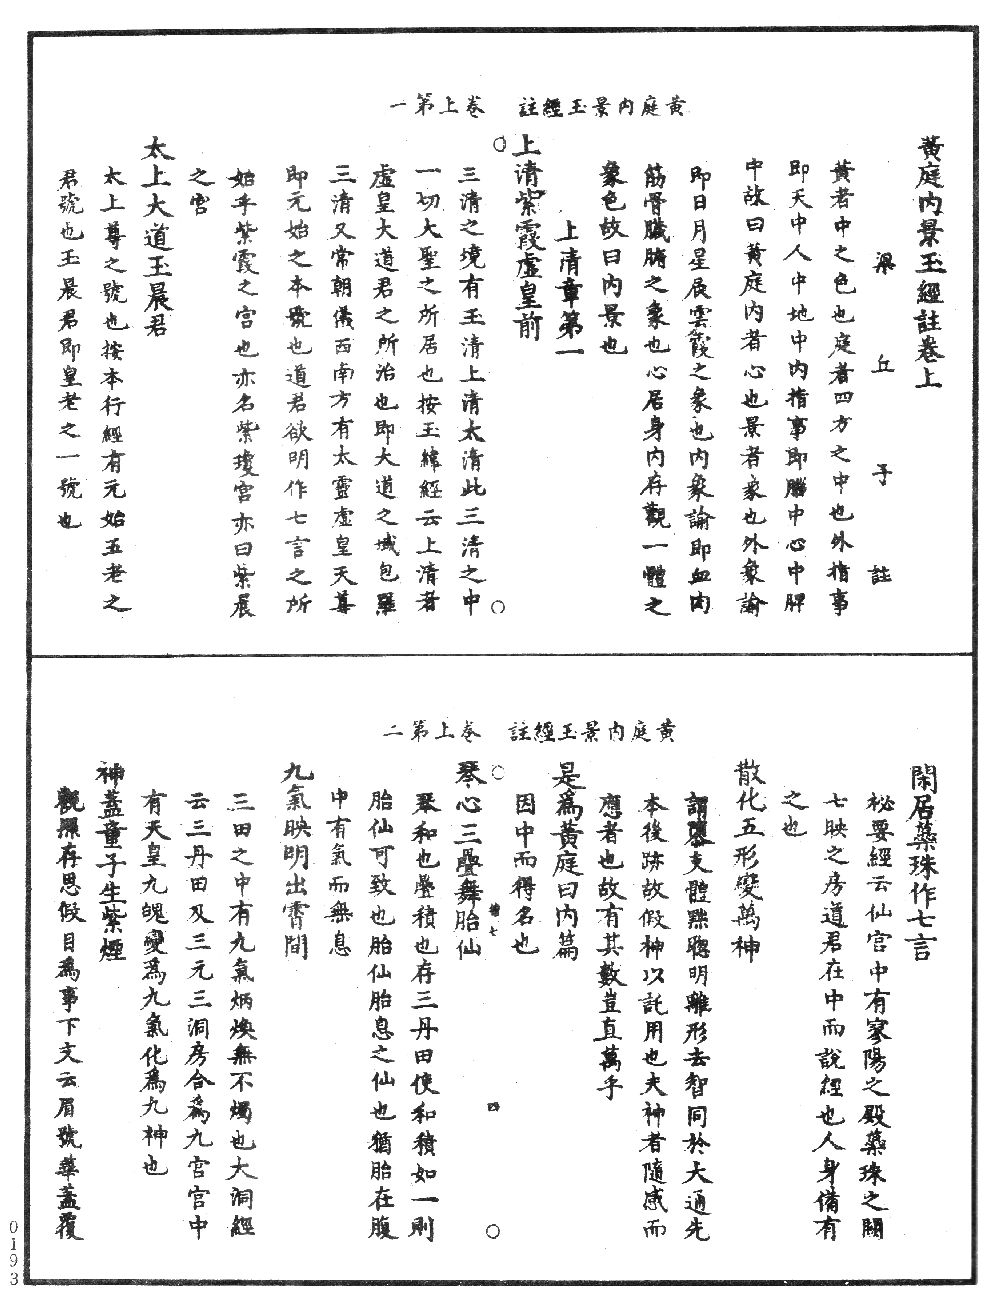 黃庭內景玉經註　卷上第一
黃庭內景玉經註卷上
梁丘子註
黃者中之色也庭者四方之中也外指事
即天中人中地中內指事即腦中心中脾
中故曰黃庭內者心也景者象也外象諭
即日月星辰雲霞之象也內象諭即血肉
筋骨臟腑之象也心居身內存觀一體之
象色故曰內景也
上清章第一
上清紫霞虛皇前
三清之境有玉清上清太清此三清之中
一切大聖之所居也按玉緯經云上清者
虛皇大道君之所治也即大道之域包羅
三清又常朝儀西南方有太靈虛皇天尊
即元始之本號也道君欲明作七言之所
始乎紫霞之宮也亦名紫瓊宮亦曰紫晨
之宮
太上大道玉晨君
太上尊之號也按本行經有元始五老之
君號也玉晨君即皇老之一號也
黃庭內景玉經註　卷上第二
閑居蘂珠作七言
祕要經云仙宮中有寥陽之殿蘂珠之闕
七映之房道君在中而說經也人身備有
之也
散化五形變萬神
謂隳支體黜聰明離形去智同於大通先
本後跡故假神以託用也夫神者隨感而
應者也故有其數豈直萬乎
是為黃庭曰內篇
因中而得名也
琴心三疊舞胎仙
琴和也疊積也存三丹田使和積如一則
胎仙可致也胎仙胎息之仙也猶胎在腹
中有氣而無息
九氣映明出霄間
三田之中有九氣炳煥無不燭也大洞經
云三丹田及三元三洞房合為九宮宮中
有天皇九魄變為九氣化為九神也
神蓋童子生紫煙
觀照存思假目為事下文云眉號華蓋覆
0193